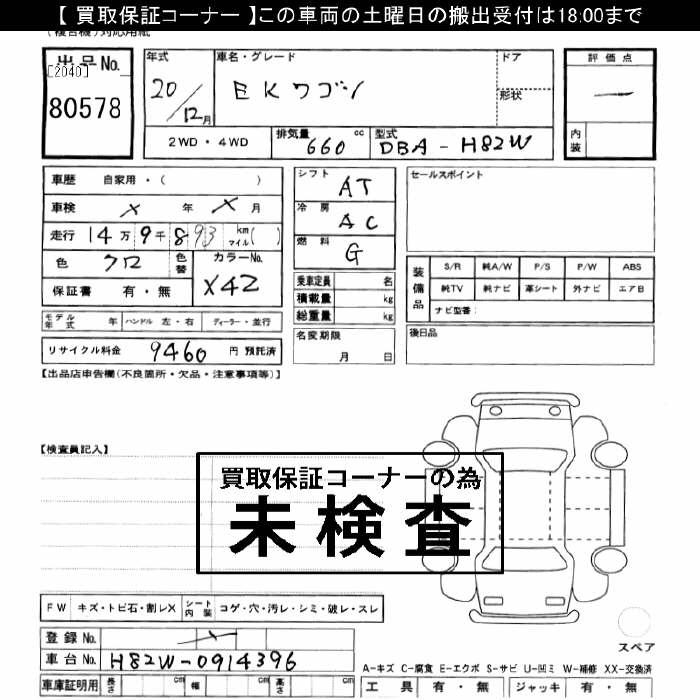 【 買取保証コーナー 】この車両の土曜日の搬出受付は18:00まで
(複合機)対応用紙
出品No.
[2040]
80578
年式
20/12月
車名・グレード
EKワゴン
ドア
形状
評価点
一
内装
2WD ・ 4WD
排気量 660 cc
型式 DBA - H82W
車歴 自家用・( )
車検 × 年 × 月
走行 14万9千893 km マイル( )
色 クロ
色替
カラーNo. X42
保証書 有・無
シフト AT
冷房 AC
燃料 G
乗車定員 名
積載量 kg
総重量 kg
名変期限 月 日
セールスポイント
装備品
S/R 純A/W P/S P/W ABS
純TV 純ナビ 革シート 外ナビ エアB
ナビ型番:
後日品
モデル年式 年 ハンドル 左・右 ディーラー・並行
リサイクル料金 9460 円 預託済
【出品店申告欄(不良箇所・欠品・注意事項等)】
【検査員記入】
買取保証コーナーの為
未検査
FW キズ・トビ石・割レX シート内装 コゲ・穴・汚レ・シミ・破レ・スレ
登録No. ×
車台No. H82W-0914396
車庫証明用 長さ cm 幅 cm 高さ cm
スペア
A-キズ C-腐食 E-エクボ S-サビ U-凹ミ W-補修 XX-交換済
工具 有・無 ジャッキ 有・無